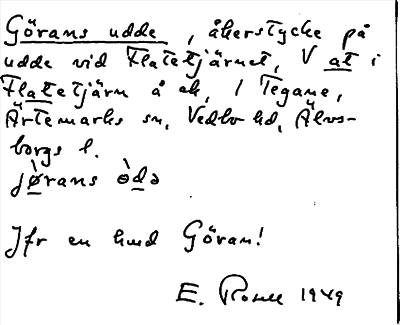 Görans udde, åkerstycke på
udde vid Flatetjärnet, V at i
Flatetjärn å ek, 1 Tegane,
Ärtemarks sn, Vedbo hd, Älvs-
borgs l.
jø̀rans òdə
Jfr en hund Göran!
E. 1949